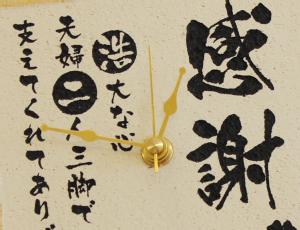 感謝
浩大な心
夫婦二人三脚で
支えてくれてあり